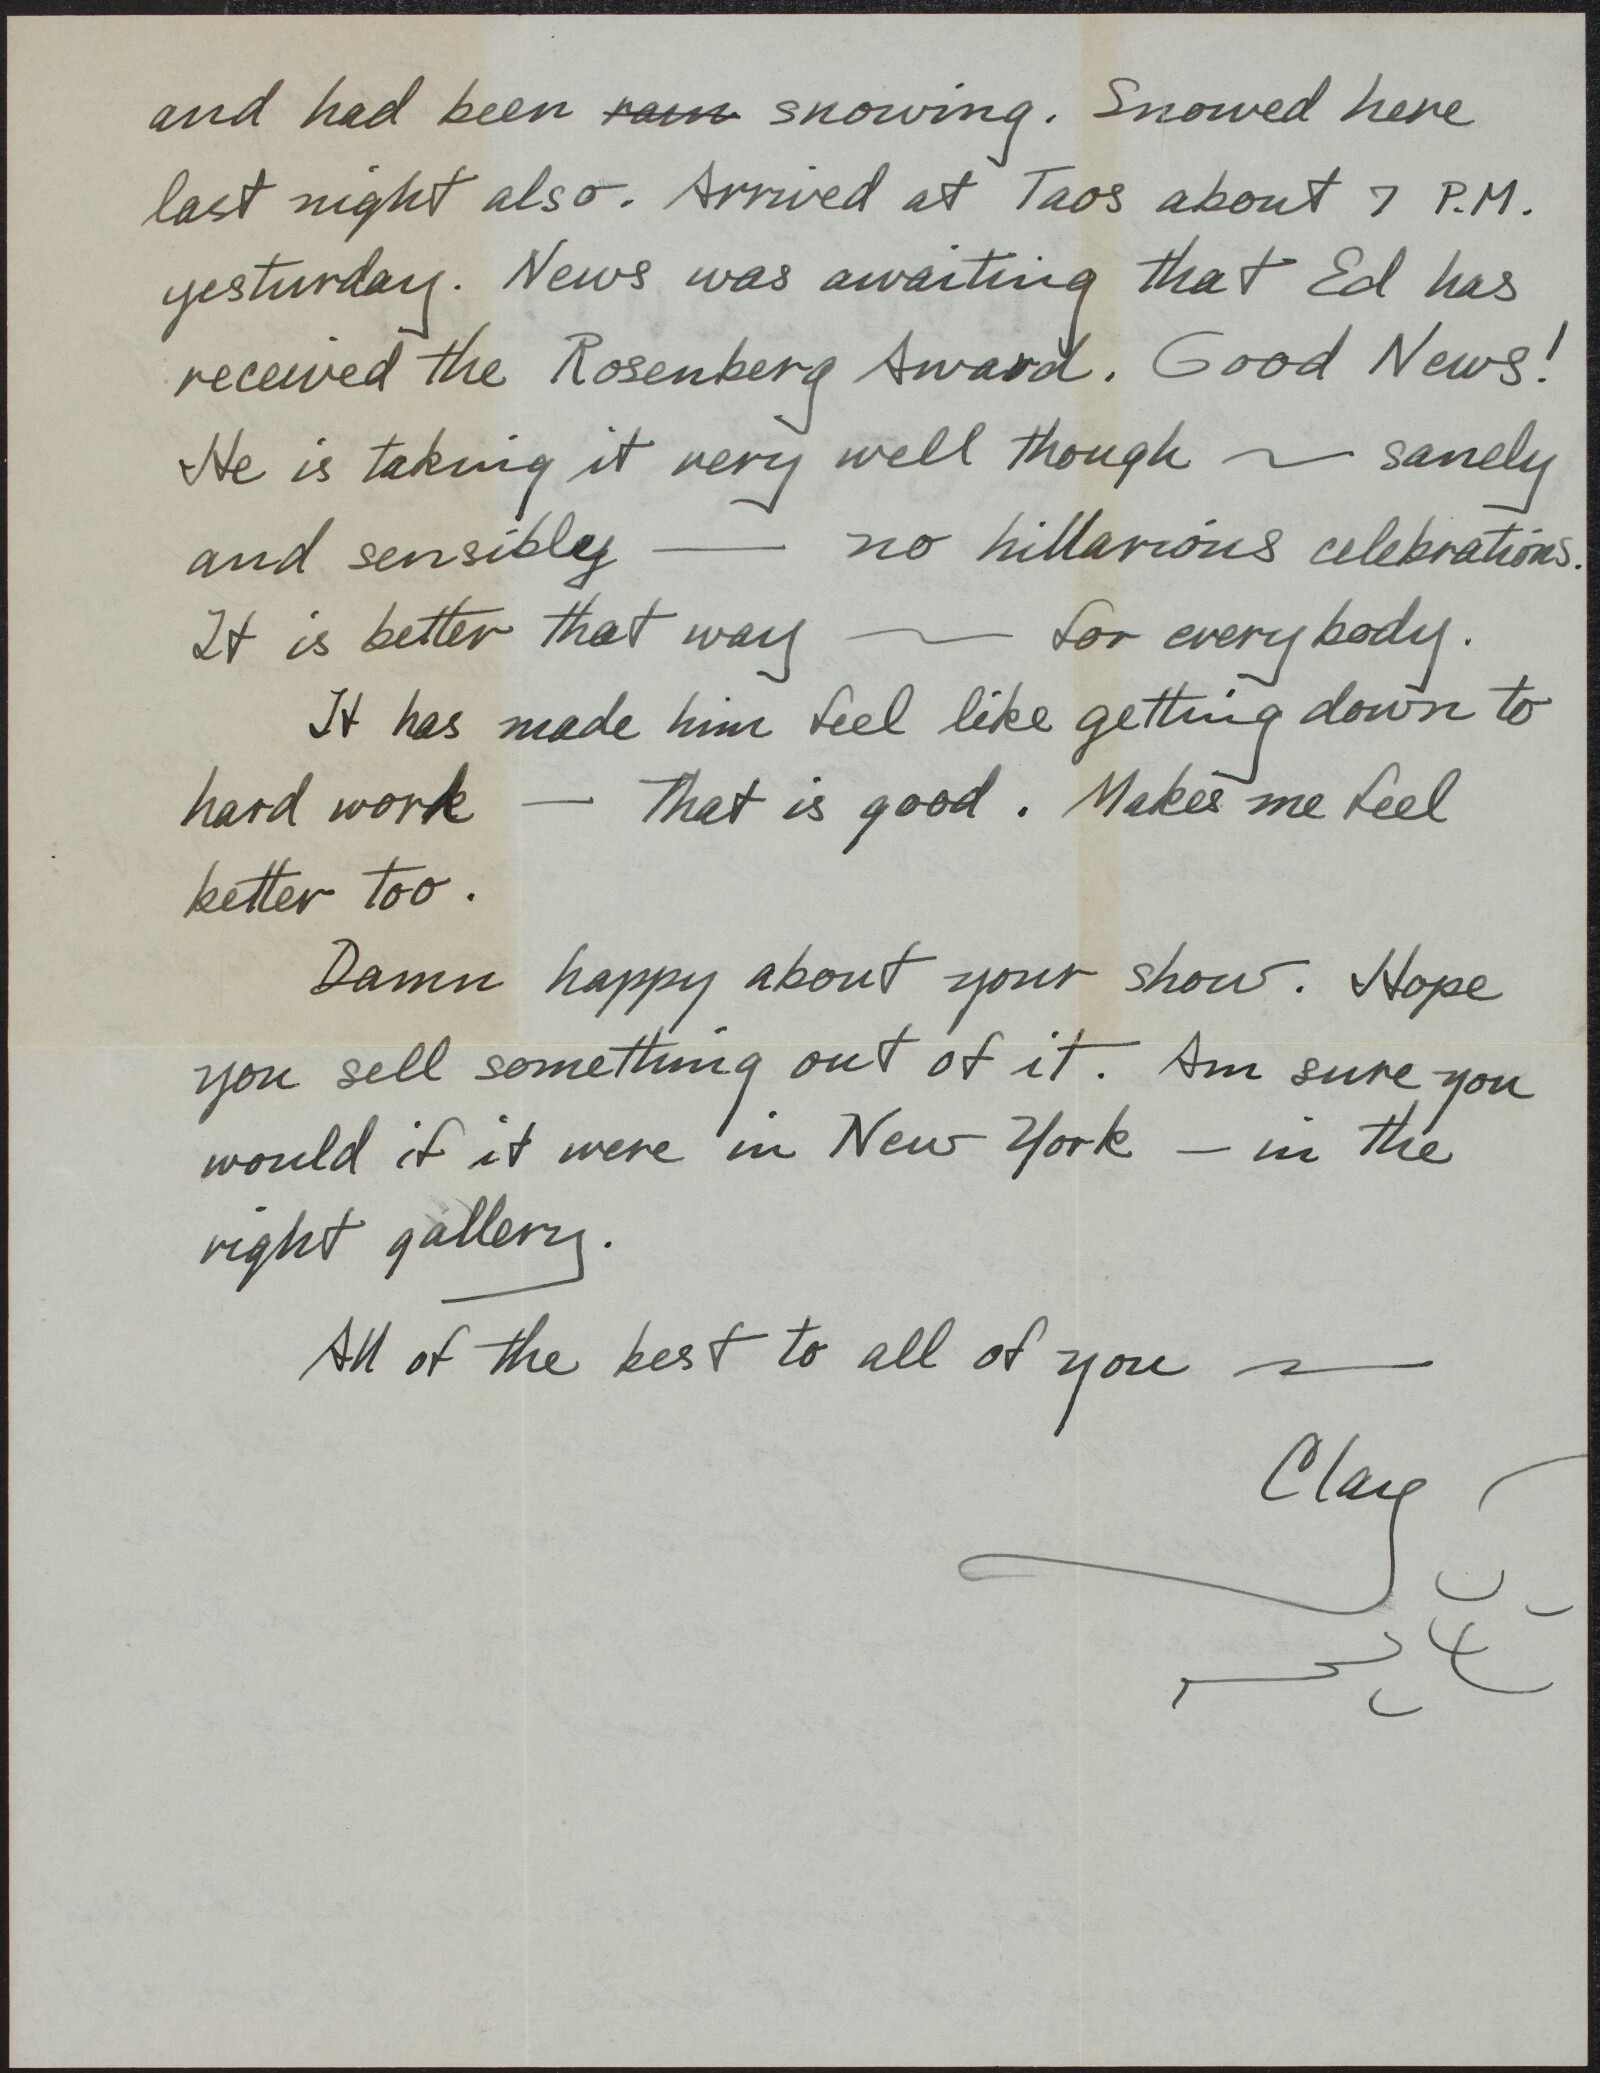 and had been rain snowing. Snowed here
last night also. Arrived at Taos about 7 P.M.
yesturday. News was awaiting that Ed has
received the Rosenberg Award. Good News!
He is taking it very well though ~ sanely
and sensibly — no hillarious celebrations.
It is better that way ~ for everybody.
It has made him feel like getting down to
hard work — that is good. Makes me feel
better too.
Damn happy about your show. Hope
you sell something out of it. Am sure you
would if it were in New York — in the
right gallery.
All of the best to all of you ~
Clay